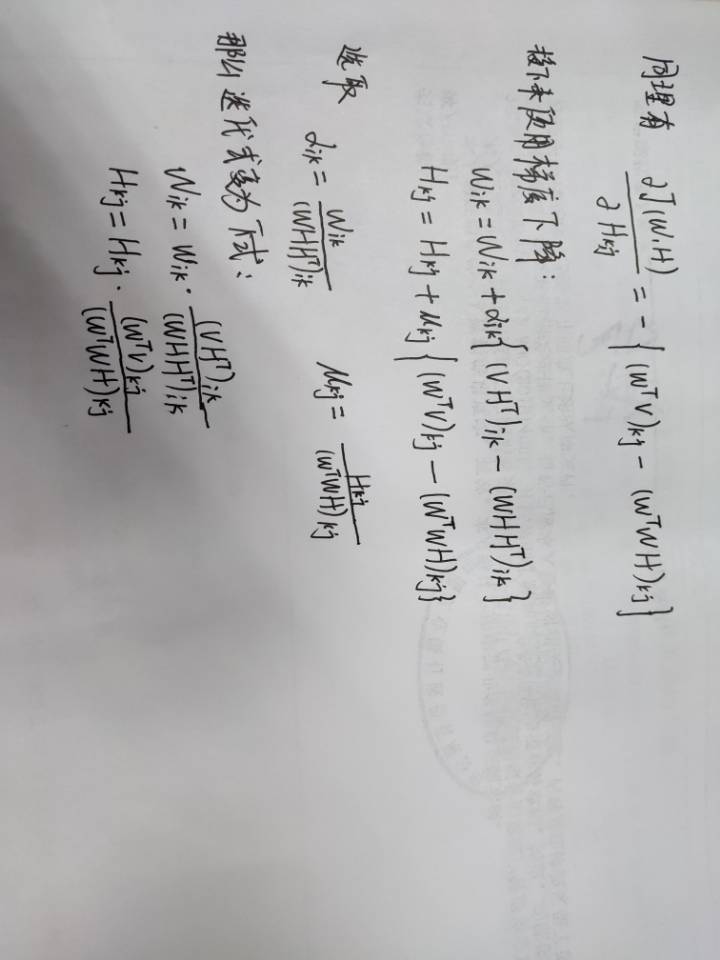 同理有
∂J(W,H)/∂Hkj = -{(WᵀV)kj - (WᵀWH)kj}
接下来使用梯度下降:
Wik = Wik + αik{(VHᵀ)ik - (WHHᵀ)ik}
Hkj = Hkj + μkj{(WᵀV)kj - (WᵀWH)kj}
选取
αik = Wik/(WHHᵀ)ik μkj = Hkj/(WᵀWH)kj
那么迭代式变为下式:
Wik = Wik · (VHᵀ)ik/(WHHᵀ)ik
Hkj = Hkj · (WᵀV)kj/(WᵀWH)kj